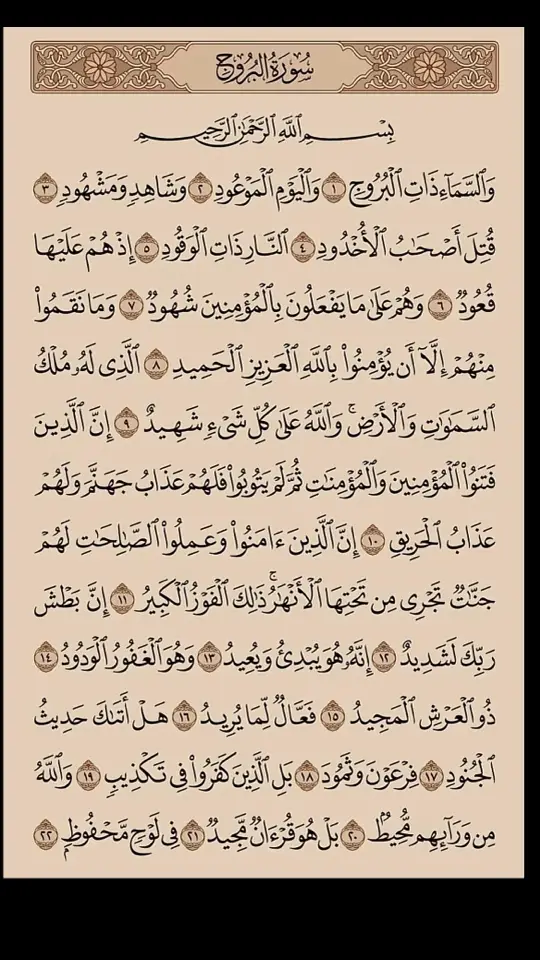 سُورَةُ البُرُوجِ
بِسْمِ ٱللَّهِ ٱلرَّحْمَٰنِ ٱلرَّحِيمِ
وَٱلسَّمَآءِ ذَاتِ ٱلْبُرُوجِ ١ وَٱلْيَوْمِ ٱلْمَوْعُودِ ٢ وَشَاهِدٍ وَمَشْهُودٍ ٣
قُتِلَ أَصْحَٰبُ ٱلْأُخْدُودِ ٤ ٱلنَّارِ ذَاتِ ٱلْوَقُودِ ٥ إِذْ هُمْ عَلَيْهَا
قُعُودٌ ٦ وَهُمْ عَلَىٰ مَا يَفْعَلُونَ بِٱلْمُؤْمِنِينَ شُهُودٌ ٧ وَمَا نَقَمُوا۟
مِنْهُمْ إِلَّآ أَن يُؤْمِنُوا۟ بِٱللَّهِ ٱلْعَزِيزِ ٱلْحَمِيدِ ٨ ٱلَّذِى لَهُۥ مُلْكُ
ٱلسَّمَٰوَٰتِ وَٱلْأَرْضِ ۚ وَٱللَّهُ عَلَىٰ كُلِّ شَىْءٍ شَهِيدٌ ٩ إِنَّ ٱلَّذِينَ
فَتَنُوا۟ ٱلْمُؤْمِنِينَ وَٱلْمُؤْمِنَٰتِ ثُمَّ لَمْ يَتُوبُوا۟ فَلَهُمْ عَذَابُ جَهَنَّمَ وَلَهُمْ
عَذَابُ ٱلْحَرِيقِ ١٠ إِنَّ ٱلَّذِينَ ءَامَنُوا۟ وَعَمِلُوا۟ ٱلصَّٰلِحَٰتِ لَهُمْ
جَنَّٰتٌ تَجْرِى مِن تَحْتِهَا ٱلْأَنْهَٰرُ ۚ ذَٰلِكَ ٱلْفَوْزُ ٱلْكَبِيرُ ١١ إِنَّ بَطْشَ
رَبِّكَ لَشَدِيدٌ ١٢ إِنَّهُۥ هُوَ يُبْدِئُ وَيُعِيدُ ١٣ وَهُوَ ٱلْغَفُورُ ٱلْوَدُودُ ١٤
ذُو ٱلْعَرْشِ ٱلْمَجِيدُ ١٥ فَعَّالٌ لِّمَا يُرِيدُ ١٦ هَلْ أَتَىٰكَ حَدِيثُ
ٱلْجُنُودِ ١٧ فِرْعَوْنَ وَثَمُودَ ١٨ بَلِ ٱلَّذِينَ كَفَرُوا۟ فِى تَكْذِيبٍ ١٩ وَٱللَّهُ
مِن وَرَآئِهِم مُّحِيطٌۢ ٢٠ بَلْ هُوَ قُرْءَانٌ مَّجِيدٌ ٢١ فِى لَوْحٍ مَّحْفُوظٍۭ ٢٢